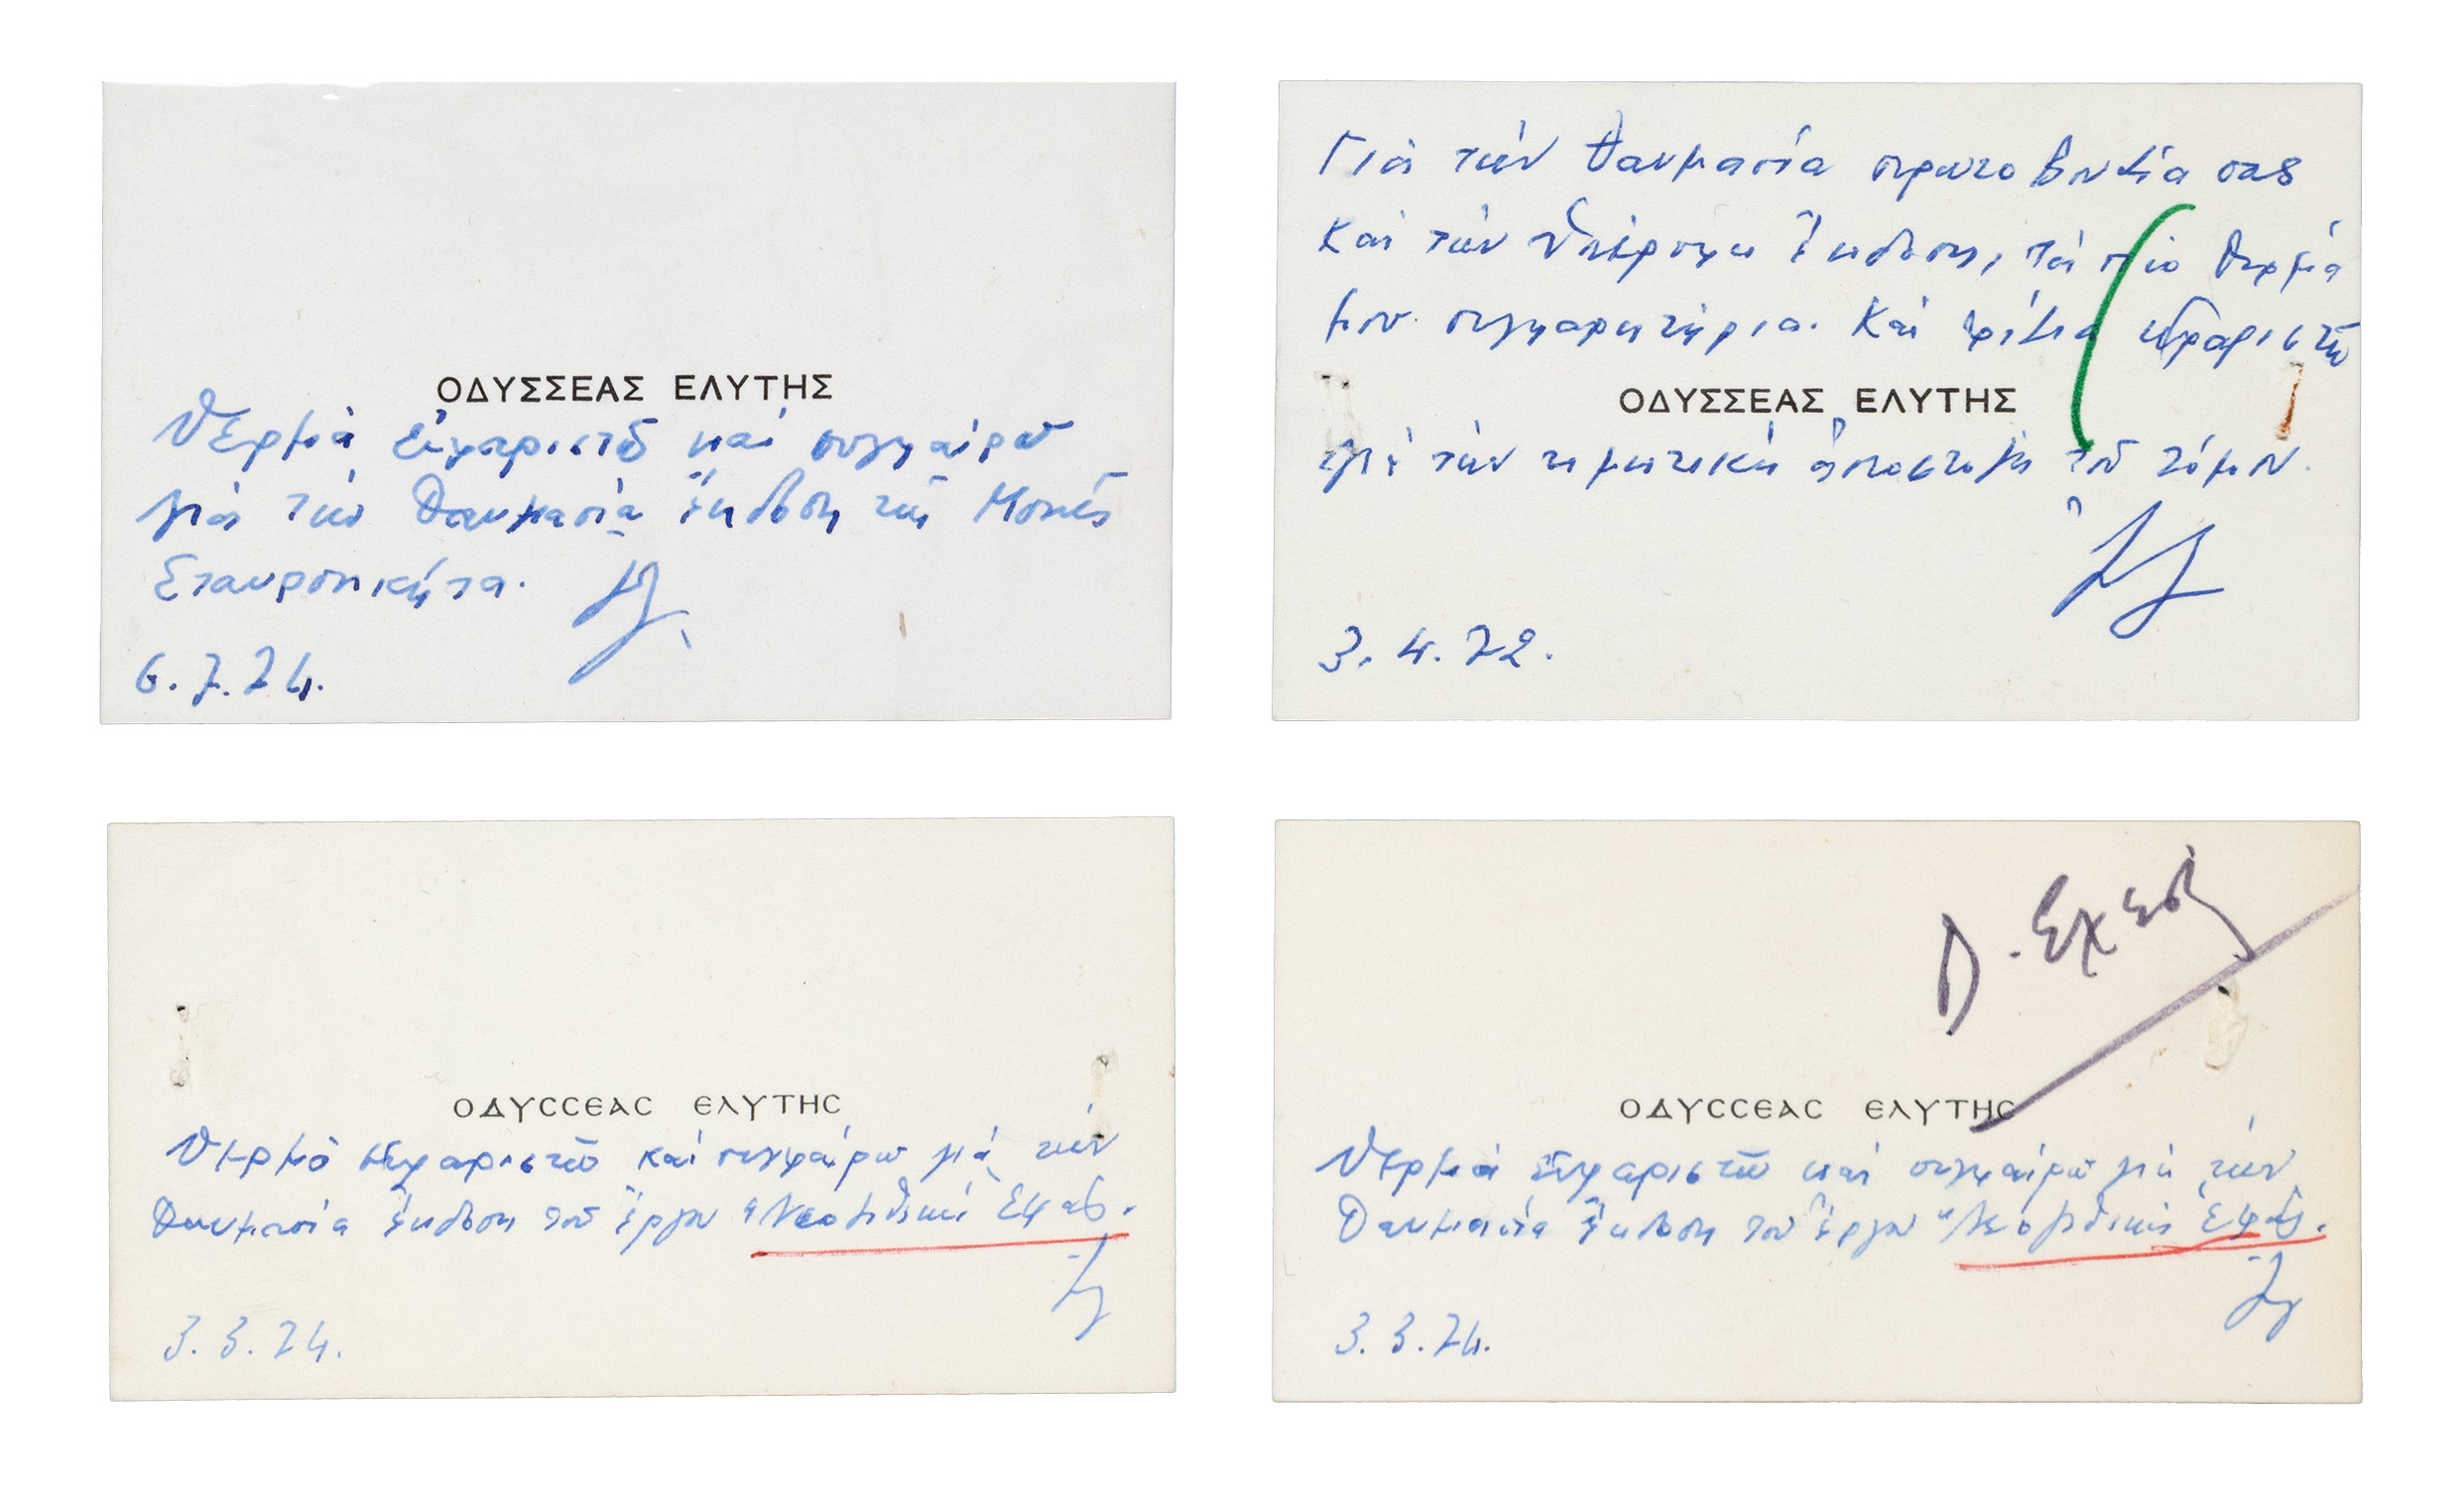 ΟΔΥΣΣΕΑΣ ΕΛΥΤΗΣ
Θερμά εὐχαριστῶ καί συγχαίρω
γιά τήν θαυμασία ἔκδοση τῆς Μονῆς
Σταυρονικήτα.
6.7.74.
Γιά τήν θαυμασία πρωτοβουλία σας
καί τήν ὑπέροχη ἔκδοση, τά πιό θερμά
μου συγχαρητήρια. Καί φίλια εὐχαριστῶ
ΟΔΥΣΣΕΑΣ ΕΛΥΤΗΣ
γιά τήν τιμητική ἀποστολή τοῦ τόμου.
3.4.72.
ΟΔΥCCΕΑC ΕΛΥΤΗC
Θερμά εὐχαριστῶ καί συγχαίρω γιά τήν
θαυμασία ἔκδοση τοῦ ἔργου "Νεολιθική
3.3.74.
Δ. Σχέση
ΟΔΥCCΕΑC ΕΛΥΤΗC
Θερμά εὐχαριστῶ καί συγχαίρω γιά τήν
θαυμασία ἔκδοση τοῦ ἔργου "Νεολιθική
3.3.74.